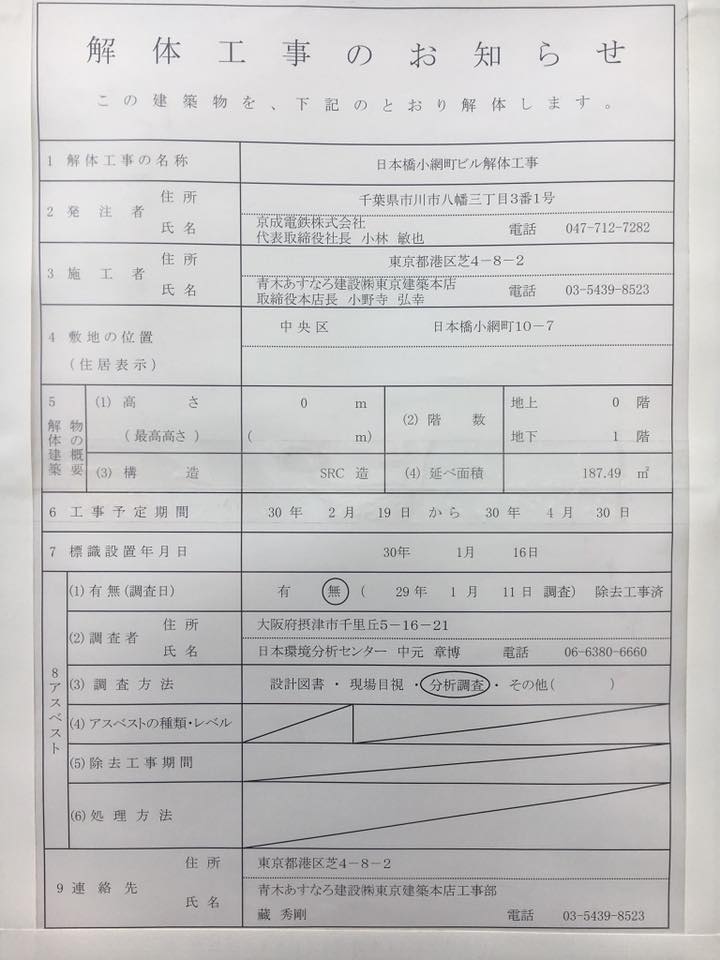 解体工事のお知らせ
この建築物を、下記のとおり解体します。
1 解体工事の名称 日本橋小網町ビル解体工事
2 発注者 住所 千葉県市川市八幡三丁目3番1号
氏名 京成電鉄株式会社
代表取締役社長 小林 敏也 電話 047-712-7282
3 施工者 住所 東京都港区芝4-8-2
氏名 青木あすなろ建設㈱東京建築本店
取締役本店長 小野寺 弘幸 電話 03-5439-8523
4 敷地の位置 中央区 日本橋小網町10-7
(住居表示)
5 解体建築物の概要
(1) 高さ 0 m
(最高高さ) ( m)
(2) 階数 地上 0 階
地下 1 階
(3) 構造 SRC 造 (4) 延べ面積 187.49 ㎡
6 工事予定期間 30 年 2 月 19 日 から 30 年 4 月 30 日
7 標識設置年月日 30年 1月 16日
8 アスベスト
(1) 有無(調査日) 有 無 ( 29 年 1 月 11 日 調査) 除去工事済
(2) 調査者 住所 大阪府摂津市千里丘5-16-21
氏名 日本環境分析センター 中元 章博 電話 06-6380-6660
(3) 調査方法 設計図書・現場目視・分析調査・その他( )
(4) アスベストの種類・レベル
(5) 除去工事期間
(6) 処理方法
9 連絡先 住所 東京都港区芝4-8-2
氏名 青木あすなろ建設㈱東京建築本店工事部
蔵 秀剛 電話 03-5439-8523